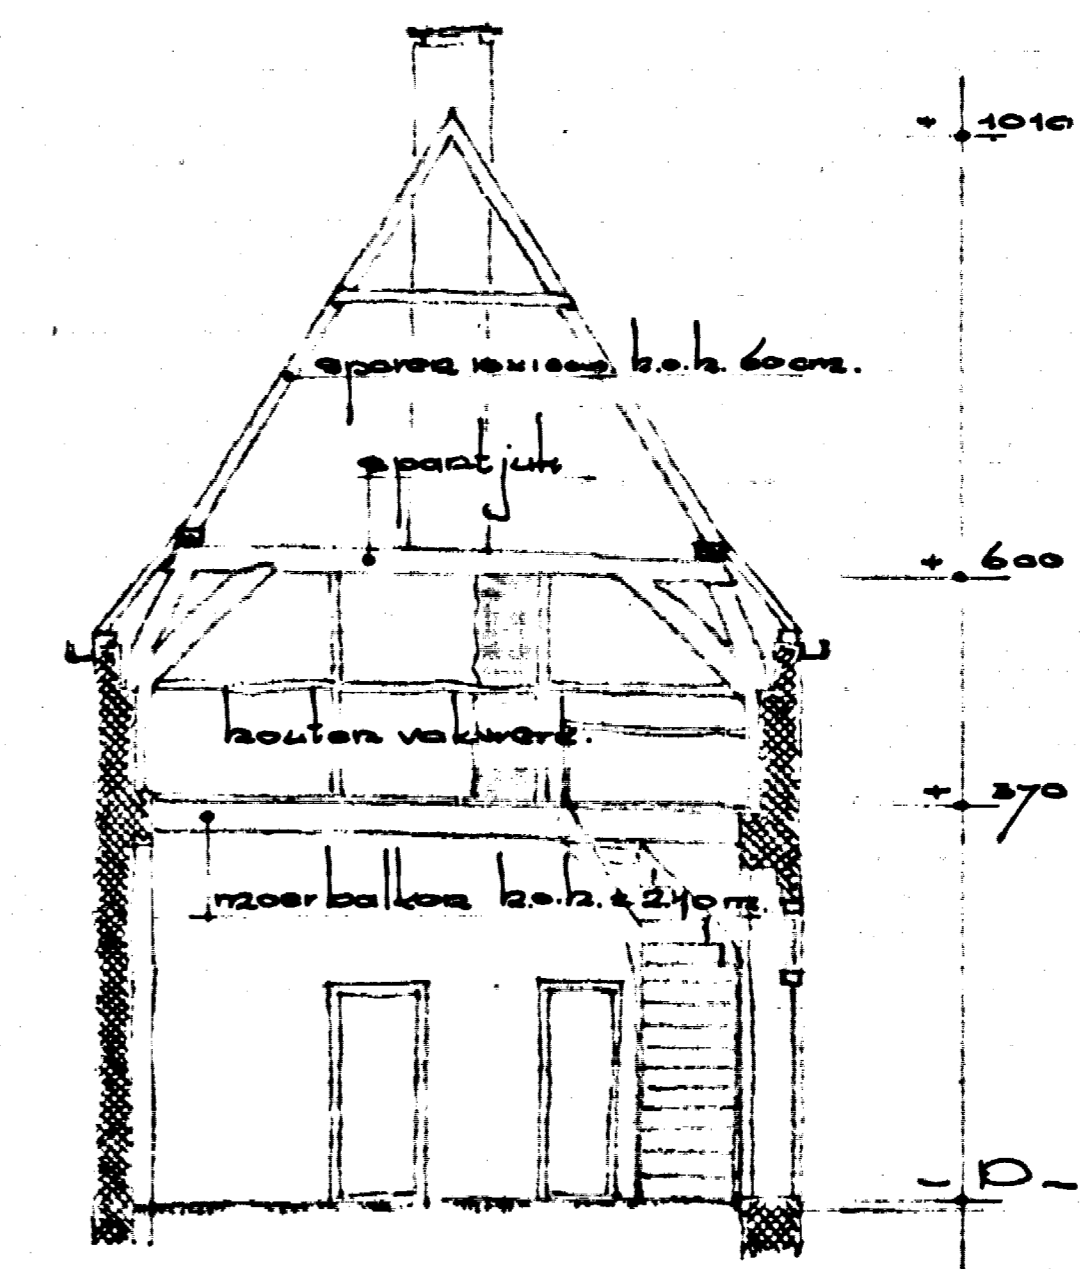 + 1010
sparen 10x10cm h.o.h. 60cm.
spantjuk
+ 600
houten vakwerk.
+ 370
moerbalken h.o.h. ± 2.40 m.